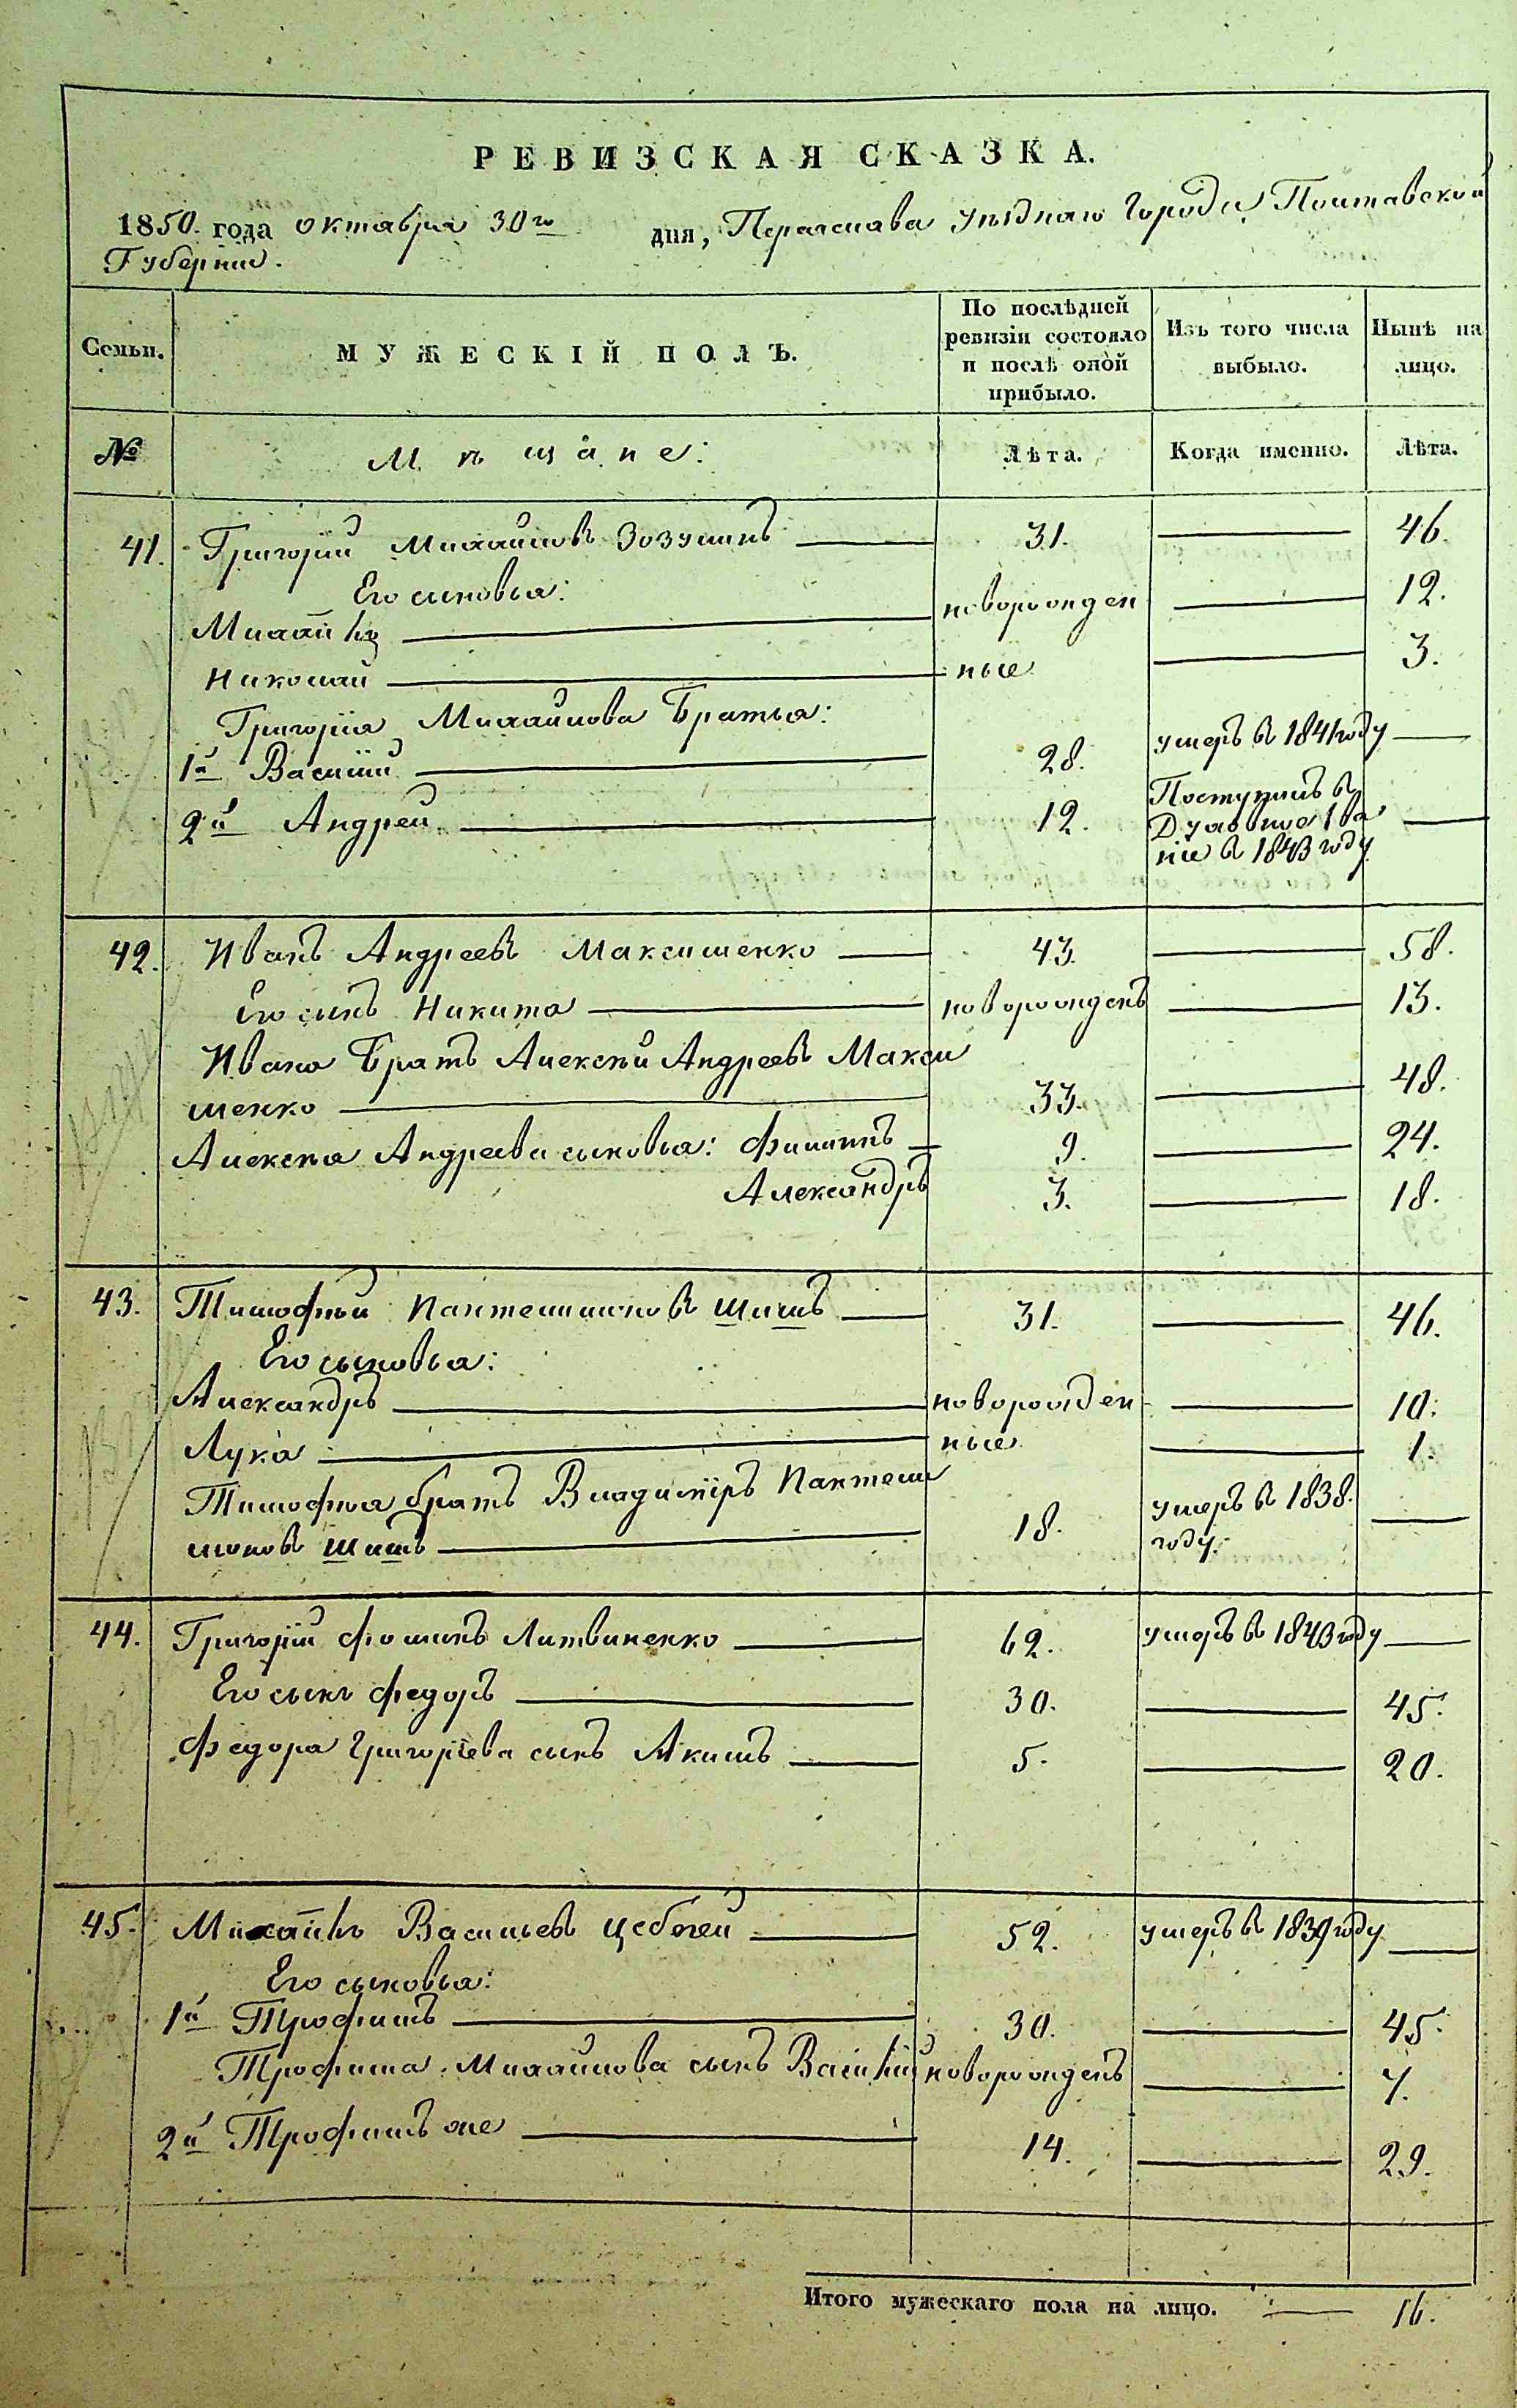 РЕВИЗСКАЯ СКАЗКА.
1850. года октября 30го дня, Переяслава уѣзднаго Города Полтавской
Губерніи.
Семьи.
МУЖЕСКІЙ ПОЛЪ.
По послѣдней ревизіи состояло и послѣ оной прибыло.
Изъ того числа выбыло.
Нынѣ на лицо.
№
Мѣщане:
Лѣта.
Когда именно.
Лѣта.
41. Григорій Михайловъ Зозулинъ 31. 46.
Его сыновья:
Михаилъ новорожден 12.
Николай ные 3.
Григорія Михайлова Братья:
1й Василій 28. умеръ въ 1841 году
2й Андрей 12. Поступилъ въ
Духовное Зва
ніе въ 1843 году
42. Иванъ Андреевъ Максименко 43. 58.
Его сынъ Никита новорожденъ 13.
Ивана Братъ Алексѣй Андреевъ Макси
менко 33. 48.
Алексѣя Андреева сыновья: Филипъ 9. 24.
Александръ 3. 18.
43. Тимофѣй Пантелимоновъ Шишъ 31. 46.
Его сыновья:
Александръ новорожден 10.
Лука ные 1.
Тимофѣя братъ Владиміръ Пантели
моновъ Шишъ 18. умеръ въ 1838.
году.
44. Григорій Фоминъ Литвиненко 62. умеръ въ 1843 году
Его сынъ Федоръ 30. 45.
Федора Григорьева сынъ Акимъ 5. 20.
45. Михаилъ Васильевъ 52. умеръ въ 1839 году
Его сыновья:
1й Трофимъ 30. 45.
Трофима Михайлова сынъ Василій новорожденъ 7.
2й Трофимъ же 14. 29.
Итого мужескаго пола на лицо. 16.